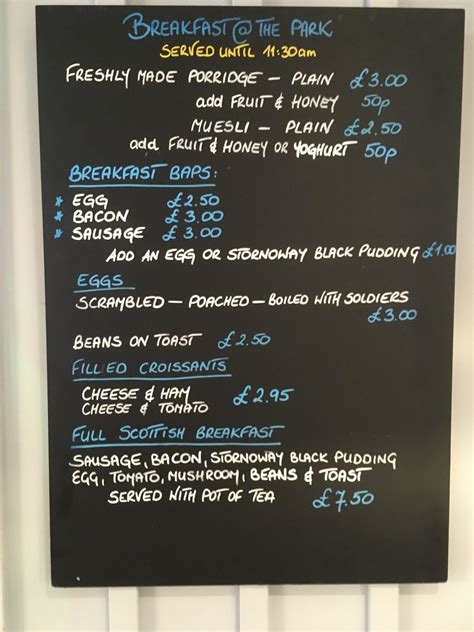 BREAKFAST @ THE PARK
SERVED UNTIL 11:30am
FRESHLY MADE PORRIDGE – PLAIN £3.00
add FRUIT & HONEY 50p
MUESLI – PLAIN £2.50
add FRUIT & HONEY OR YOGHURT 50p
BREAKFAST BAPS:
* EGG £2.50
* BACON £3.00
* SAUSAGE £3.00
ADD AN EGG OR STORNOWAY BLACK PUDDING £1.00
EGGS
SCRAMBLED – POACHED – BOILED WITH SOLDIERS
£3.00
BEANS ON TOAST £2.50
FILLED CROISSANTS
CHEESE & HAM
CHEESE & TOMATO £2.95
FULL SCOTTISH BREAKFAST
SAUSAGE, BACON, STORNOWAY BLACK PUDDING
EGG, TOMATO, MUSHROOM, BEANS & TOAST
SERVED WITH POT OF TEA £7.50